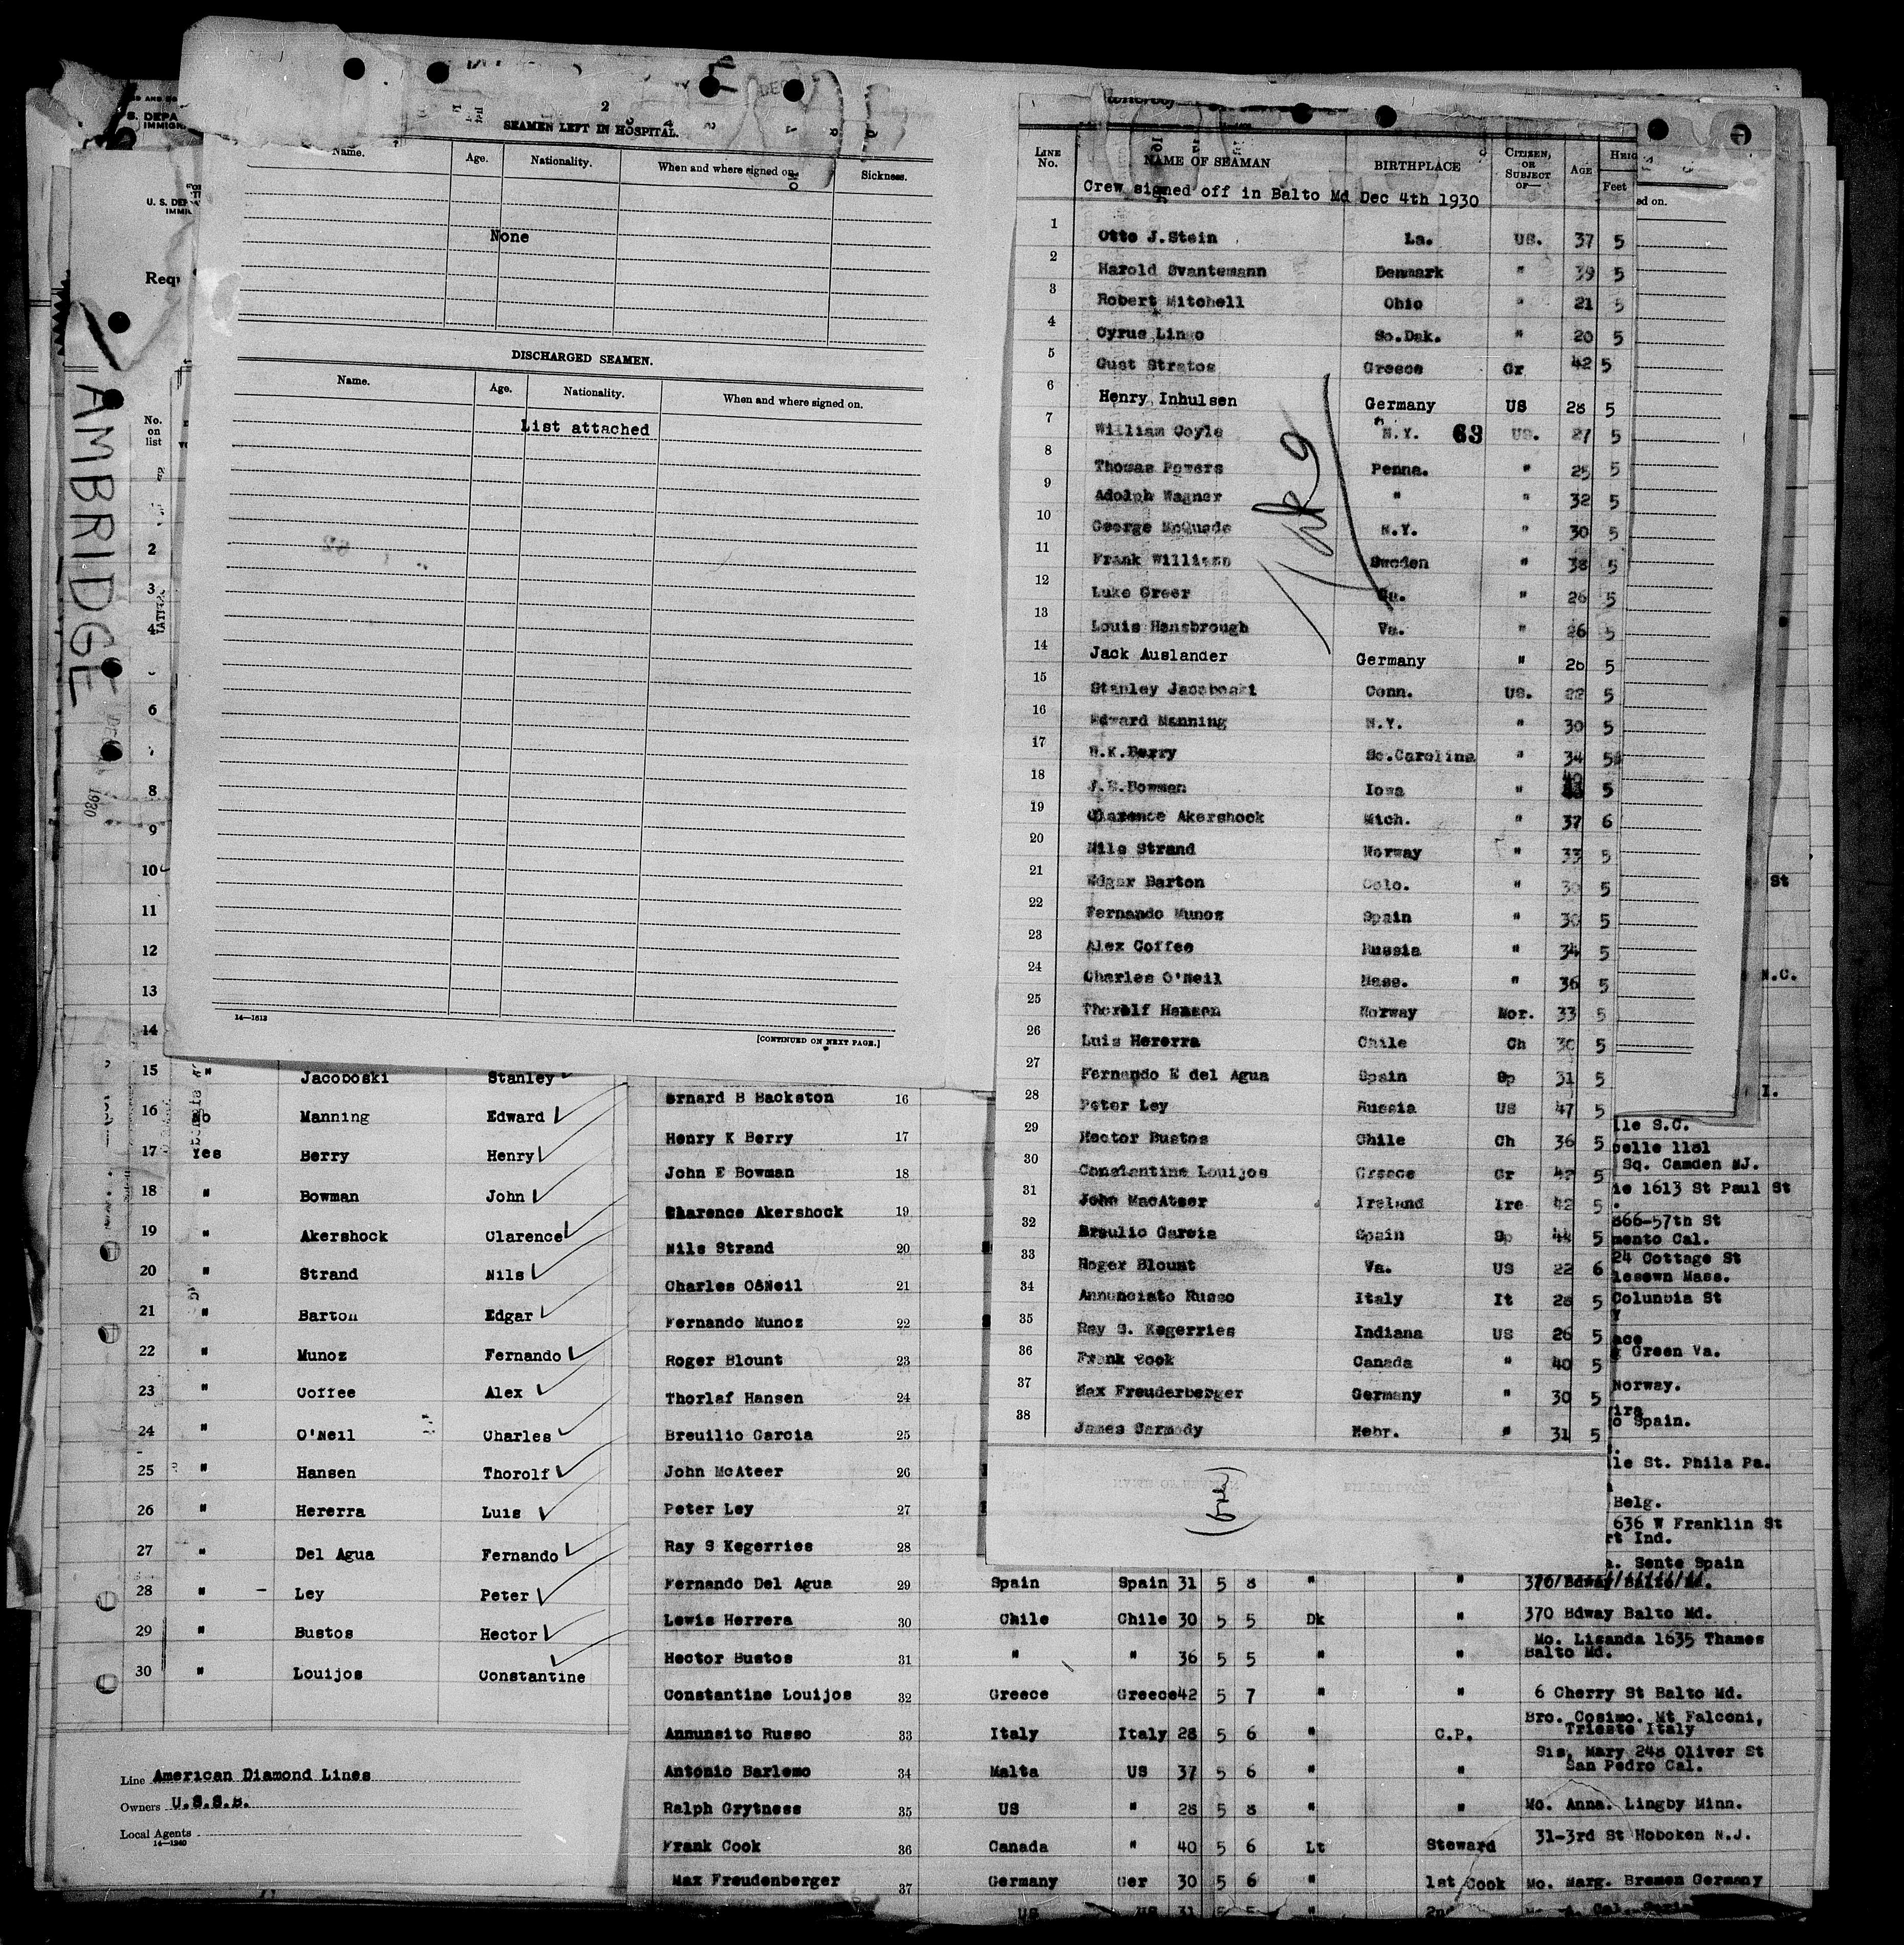 S. DEPA
IMMIGR
U. S. DEP
IMMIG
Requ
AMBRIDGE
1930
No.
on
list
2
3
4
6
8
9
10
11
12
13
14
2
SEAMEN LEFT IN HOSPITAL.
Name. Age. Nationality. When and where signed on. Sickness.
None
DISCHARGED SEAMEN.
Name. Age. Nationality. When and where signed on.
List attached
14—1613
[CONTINUED ON NEXT PAGE.]
LINE No. NAME OF SEAMAN BIRTHPLACE CITIZEN, OR SUBJECT OF— AGE HEIG
Feet
ed on.
Crew signed off in Balto Md Dec 4th 1930
1 Otto J.Stein La. US. 37 5
2 Harold Svantemann Denmark " 39 5
3 Robert Mitchell Ohio " 21 5
4 Cyrus Lingo So.Dak. " 20 5
5 Gust Stratos Greece Gr 42 5
6 Henry Inhulsen Germany US 28 5
7 William Coyle N.Y. 63 US. 27 5
8 Thomas Powers Penna. " 25 5
9 Adolph Wagner " " 32 5
10 George McQuade N.Y. " 30 5
11 Frank William Sweden " 38 5
12 Luke Greer Ga. " 26 5
13 Louis Hansbrough Va. " 26 5
14 Jack Auslander Germany " 26 5
15 Stanley Jacoboski Conn. US. 22 5
16 Edward Manning N.Y. " 30 5
17 H.K.Berry So.Carolina " 34 5
18 J.E.Bowman Iowa " 5
19 Clarence Akershock Mich. " 37 6
20 Nils Strand Norway " 33 5
21 Edgar Barton Colo. " 5
22 Fernando Munoz Spain " 30 5
23 Alex Coffee Russia " 34 5
24 Charles O'Neil Mass. " 36 5
25 Thorolf Hansen Norway Nor. 33 5
26 Luis Hererra Chile Ch 30 5
27 Fernando E del Agua Spain Sp 31 5
28 Peter Ley Russia US 47 5
29 Hector Bustos Chile Ch 36 5
30 Constantine Louijos Greece Gr 42 5
31 John MacAteer Ireland Ire 42 5
32 Braulio Garcia Spain Sp 44 5
33 Roger Blount Va. US 22 6
34 Annunciato Russo Italy It 28 5
35 Ray S. Kegerries Indiana US 26 5
36 Frank Cook Canada " 40 5
37 Max Freuderberger Germany " 30 5
38 James Carmody Nebr. " 31 5
St
N.C.
I.
15 " Jacoboski Stanley
16 No Manning Edward
17 Yes Berry Henry
18 " Bowman John
19 " Akershock Clarence
20 " Strand Nils
21 " Barton Edgar
22 " Munoz Fernando
23 " Coffee Alex
24 " O'Neil Charles
25 " Hansen Thorolf
26 " Hererra Luis
27 " Del Agua Fernando
28 " Ley Peter
29 " Bustos Hector
30 " Louijos Constantine
Line American Diamond Lines
Owners U.S.S.B.
Local Agents
14—1240
ernard B Backston 16
Henry K Berry 17
John E Bowman 18
Clarence Akershock 19
Nils Strand 20
Charles O'Neil 21
Fernando Munoz 22
Roger Blount 23
Thorlaf Hansen 24
Breuilio Garcia 25
John McAteer 26
Peter Ley 27
Ray S Kegerries 28
lle S.C.
Sq. Camden NJ.
ie 1613 St Paul St
866-57th St
mento Cal.
24 Cottage St
lesown Mass.
Columbia St
Green Va.
Norway.
Spain.
le St. Phila Pa.
Belg.
636 W Franklin St
rt Ind.
a. Sente Spain
Fernando Del Agua 29 Spain Spain 31 5 8 " " 376 Bdway Balto Md.
Lewis Herrera 30 Chile Chile 30 5 5 Dk " 370 Bdway Balto Md.
Hector Bustos 31 " " 36 5 5 " " Mo. Lisanda 1635 Thames
Balto Md.
Constantine Louijos 32 Greece Greece 42 5 7 " " 6 Cherry St Balto Md.
Annunsito Russo 33 Italy Italy 28 5 6 " C.P. Bro. Cosimo. Mt Falconi,
Trieste Italy
Antonio Barlemo 34 Malta US 37 5 6 " " Sis, Mary 248 Oliver St
San Pedro Cal.
Ralph Grytness 35 US " 28 5 8 " " Mo. Anna. Lingby Minn.
Frank Cook 36 Canada " 40 5 6 Lt Steward 31-3rd St Hoboken N.J.
Max Freudenberger 37 Germany Ger 30 5 6 " 1st Cook Mo. Marg. Bremen Germany
US US 31 5